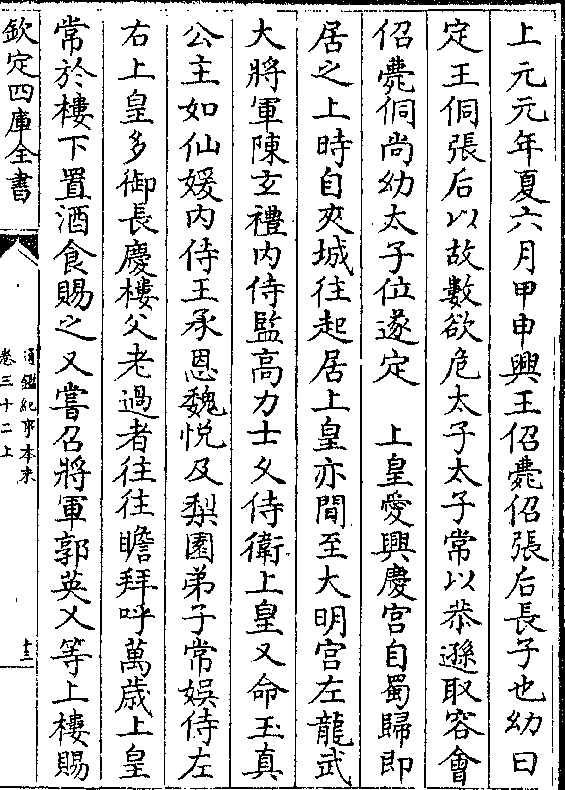 上元元年夏六月甲申興王佋薨佋張后長子也幼曰
定王侗張后以故數欲危太子太子常以恭遜取容會
佋薨侗尚幼太子位遂定　上皇愛興慶宫自蜀歸即
居之上時自夾城往起居上皇亦間至大明宫左龍武
大將軍陳玄禮内侍監高力士乆侍衛上皇又命玉真
公主如仙媛内侍王承恩魏悦及梨園弟子常娯侍左
右上皇多御長慶樓父老過者往往瞻拜呼萬歳上皇
常於樓下置酒食賜之又嘗召將軍郭英乂等上樓賜
欽定四庫全書
通鑑紀事本末
卷三十二上
十三